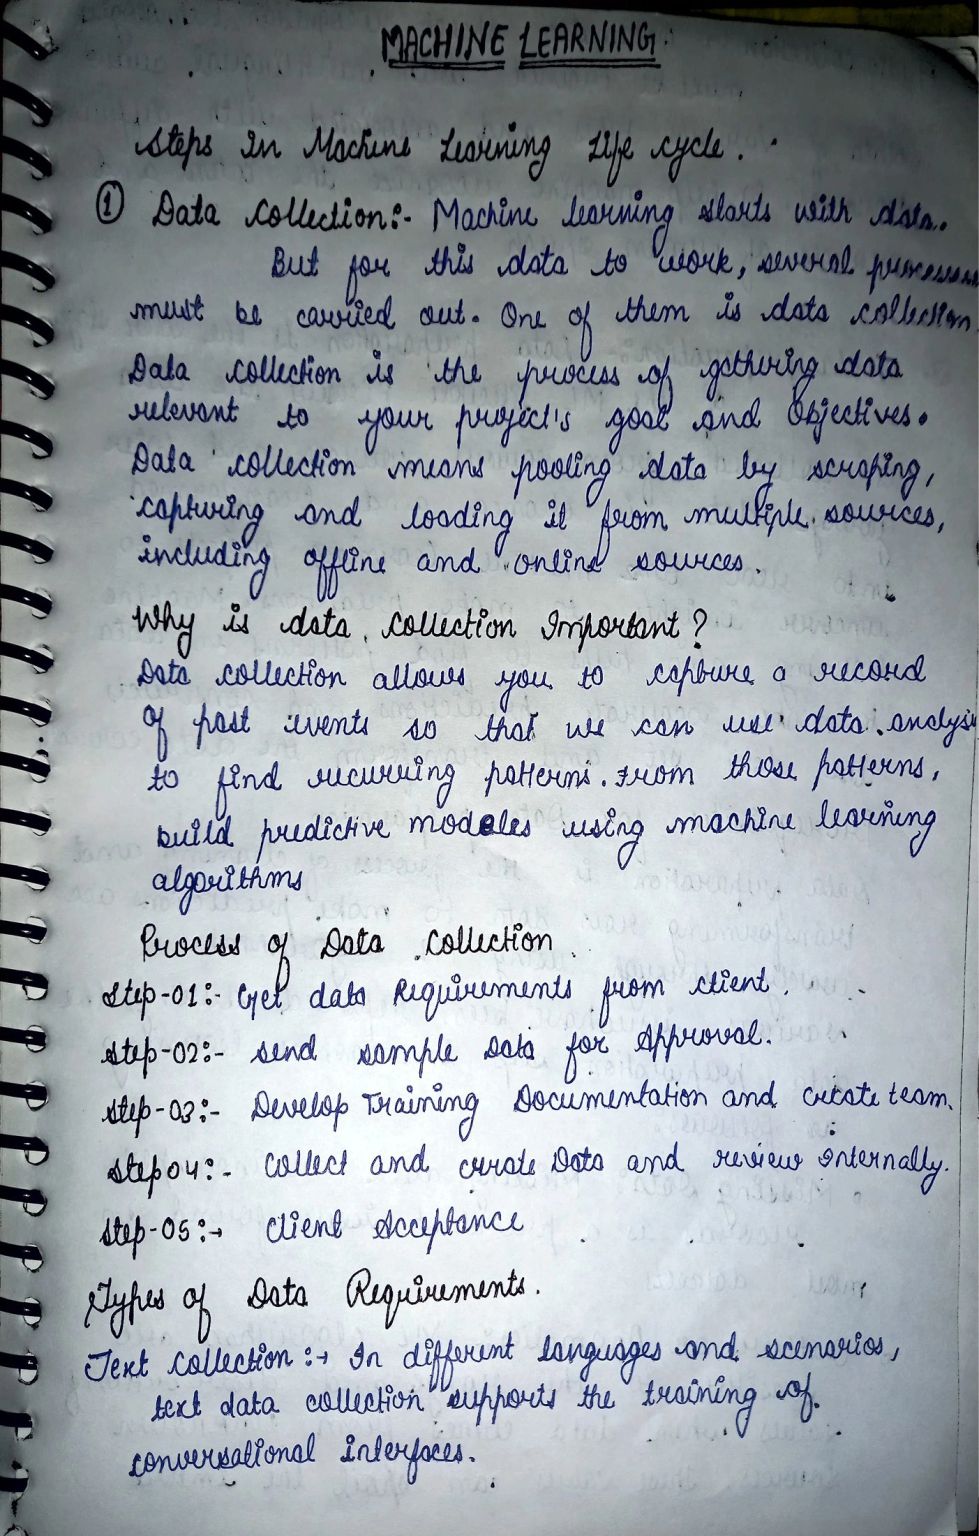 MACHINE LEARNING
Steps In Machine Learning Life cycle.
① Data Collection:- Machine learning starts with data.
But for this data to work, several processes
must be carried out. One of them is data collection
Data collection is the process of gathering data
relevant to your project's goal and Objectives.
Data collection means pooling data by scraping,
capturing and loading it from multiple sources,
including offline and online sources.
Why is data collection Important?
Data collection allows you to capture a record
of past events so that we can use data analysis
to find recurring patterns. From those patterns,
build predictive modeles using machine learning
algorithms
Process of Data Collection
Step-01:- Get data Requirements from client.
Step-02:- send sample Data for Approval.
Step-03:- Develop Training Documentation and create team.
Step 04:- Collect and curate Data and review Internally.
Step-05:→ Client Acceptance
Types of Data Requirements.
Text Collection:→ In different languages and scenarios,
text data collection supports the training of
conversational interfaces.